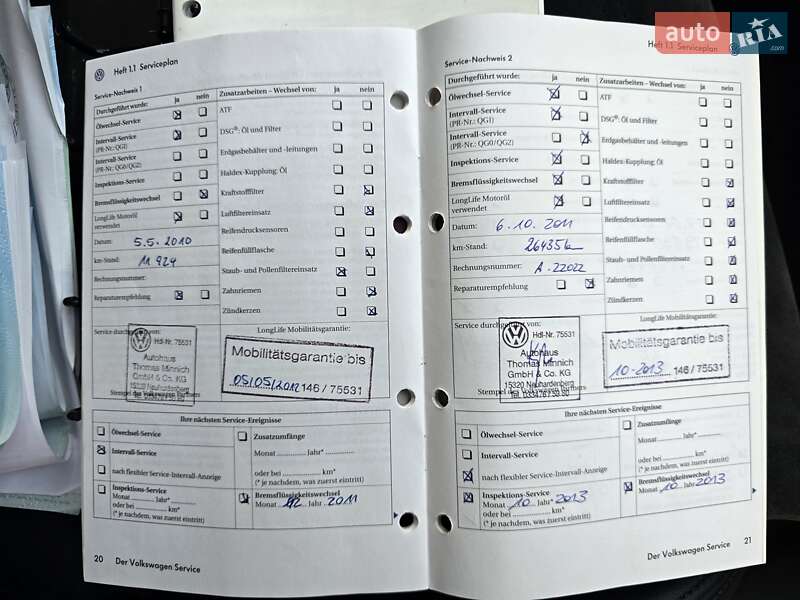 auto
RIA
.com
Heft 1.1 Serviceplan
Service-Nachweis 1
Durchgeführt wurde: ja nein
Ölwechsel-Service
Intervall-Service
(PR-Nr.: QG1)
Intervall-Service
(PR-Nr.: QG0/QG2)
Inspektions-Service
Bremsflüssigkeitswechsel
LongLife Motoröl
verwendet
Datum: 5.5.2010
km-Stand: 11 924
Rechnungsnummer:
Reparaturempfehlung
Zusatzarbeiten – Wechsel von: ja nein
ATF
DSG®: Öl und Filter
Erdgasbehälter und -leitungen
Haldex-Kupplung: Öl
Kraftstofffilter
Luftfiltereinsatz
Reifendrucksensoren
Reifenfüllflasche
Staub- und Pollenfiltereinsatz
Zahnriemen
Zündkerzen
Service durchgeführt von:
Hdl-Nr. 75531
Autohaus
Thomas Minnich
GmbH & Co. KG
15320 Neuhardenberg
Stempel des Volkswagen Partners
LongLife Mobilitätsgarantie:
Mobilitätsgarantie bis
05/05/2012 146 / 75531
Ihre nächsten Service-Ereignisse
Ölwechsel-Service
Intervall-Service
nach flexibler Service-Intervall-Anzeige
Inspektions-Service
Monat Jahr*
oder bei km*
(* je nachdem, was zuerst eintritt)
Zusatzumfänge
Monat Jahr*
oder bei km*
(* je nachdem, was zuerst eintritt)
Bremsflüssigkeitswechsel
Monat Jahr 2011
20 Der Volkswagen Service
Heft 1.1 Serviceplan
Service-Nachweis 2
Durchgeführt wurde: ja nein
Ölwechsel-Service
Intervall-Service
(PR-Nr.: QG1)
Intervall-Service
(PR-Nr.: QG0/QG2)
Inspektions-Service
Bremsflüssigkeitswechsel
LongLife Motoröl
verwendet
Datum: 6.10.2011
km-Stand:
Rechnungsnummer: A.22022
Reparaturempfehlung
Zusatzarbeiten – Wechsel von: ja nein
ATF
DSG®: Öl und Filter
Erdgasbehälter und -leitungen
Haldex-Kupplung: Öl
Kraftstofffilter
Luftfiltereinsatz
Reifendrucksensoren
Reifenfüllflasche
Staub- und Pollenfiltereinsatz
Zahnriemen
Zündkerzen
Service durchgeführt von:
Hdl-Nr. 75531
Autohaus
Thomas Minnich
GmbH & Co. KG
15320 Neuhardenberg
Stempel des Volkswagen Partners
LongLife Mobilitätsgarantie:
Mobilitätsgarantie bis
10-2013 146 / 75531
Ihre nächsten Service-Ereignisse
Ölwechsel-Service
Intervall-Service
nach flexibler Service-Intervall-Anzeige
Inspektions-Service
Monat 10 Jahr* 2013
oder bei km*
(* je nachdem, was zuerst eintritt)
Zusatzumfänge
Monat Jahr*
oder bei km*
(* je nachdem, was zuerst eintritt)
Bremsflüssigkeitswechsel
Monat 10 Jahr 2013
Der Volkswagen Service 21